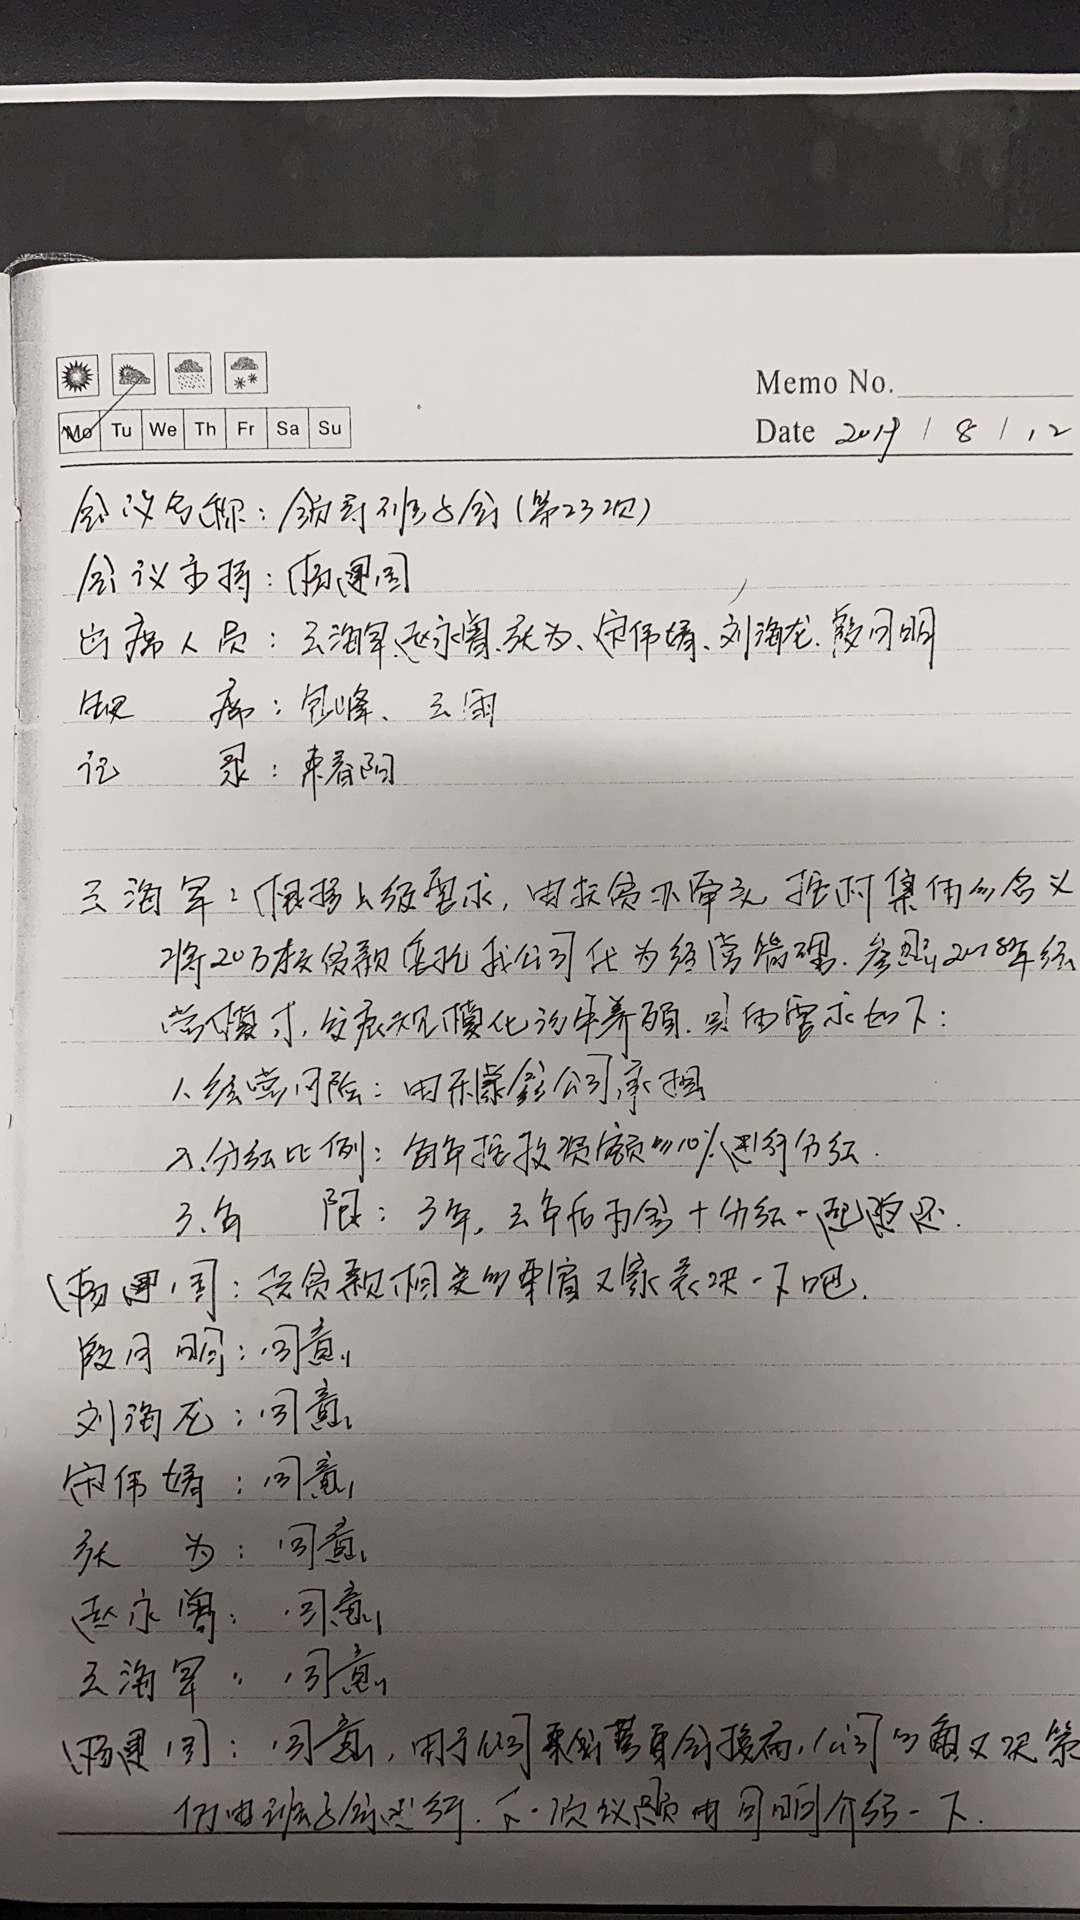 Memo No.
Mo Tu We Th Fr Sa Su
Date 2019 / 8 / 12
会议名称：领导班子会（第23次）
会议主持：杨建国
出席人员：王海军、赵永胄、张为、宋伟婧、刘海龙、段同明
缺 席：包峰、王雨
记 录：束春阳
王海军：根据上级要求，由扶贫办牵头，按村集体的名义
将20万扶贫款委托我公司作为经营管理。参照2018年经
营模式，发展规模化 养殖，具体要求如下：
1、经营风险：由禾 公司承担
2、分红比例：每年按投资额的10%进行分红。
3、年 限：3年，三年后本金+分红一起返还。
杨建国：扶贫款相关的事宜大家表决一下吧。
段同明：同意。
刘海龙：同意。
宋伟婧：同意。
张 为：同意。
赵永胄：同意。
王海军：同意。
杨建国：同意，由于公司 董事会 ，公司的重大决策
仍由班子会进行。下一项议题由同明介绍一下。